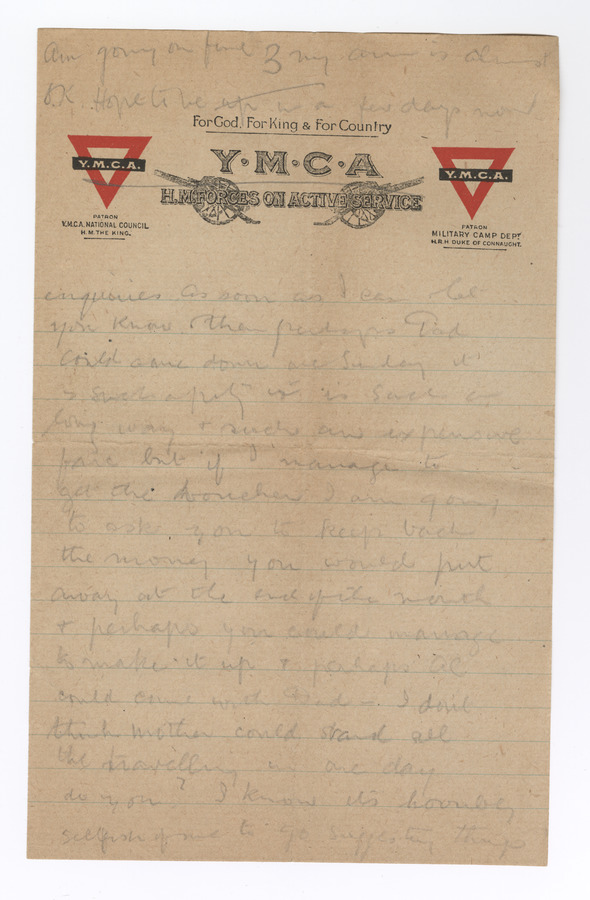 Am going on fine 3 my arm is almost
OK Hope to be up in a few days now
For God, For King & For Country
Y·M·C·A
H.M. FORCES ON ACTIVE SERVICE
Y.M.C.A.
PATRON
Y.M.C.A. NATIONAL COUNCIL
H.M. THE KING.
Y.M.C.A.
PATRON
MILITARY CAMP DEPT
H.R.H. DUKE OF CONNAUGHT.
enquiries as soon as I can let
you know. Then perhaps Dad
could come down one Sunday it
is such a pity it is such a
long way & such an expensive
fare but if I manage to
get the voucher I am going
to ask you to keep back
the money you would put
away at the end of the month
& perhaps you could manage
to make it up & perhaps
could come with Dad - I don't
think Mother could stand all
the travelling in one day
do you? I know it's horribly
selfish of me to go suggesting things